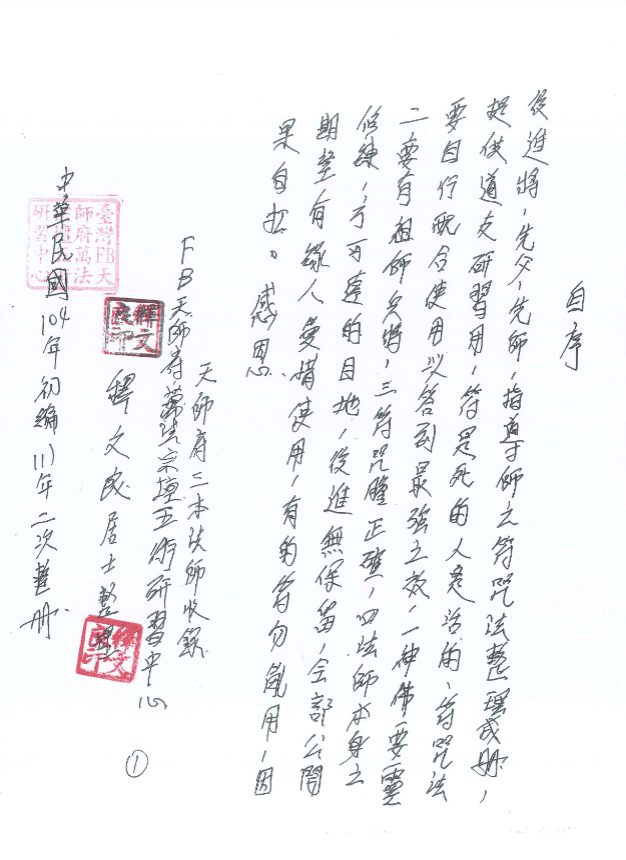 自序
後進將，先父，先師，指導師之符咒法整理成册，
提供道友研習用，符是死的人是活的，符咒法
要自行配合使用以答到最強之效，一神佛要靈
二要有祖師兵將，三符咒膽正確，四法師本身之
修練，方可達的目地，後進無保留，全部公開
期望有緣人愛惜使用，有的符勿亂用，因
果自担。感恩
天師府三本法師收錄
FB天師府萬法宗壇五術研習中心
釋文成居士整理
中華民國104年初編111年二次整册
臺灣FB天
師府萬法
研習中心
釋文
釋文
①